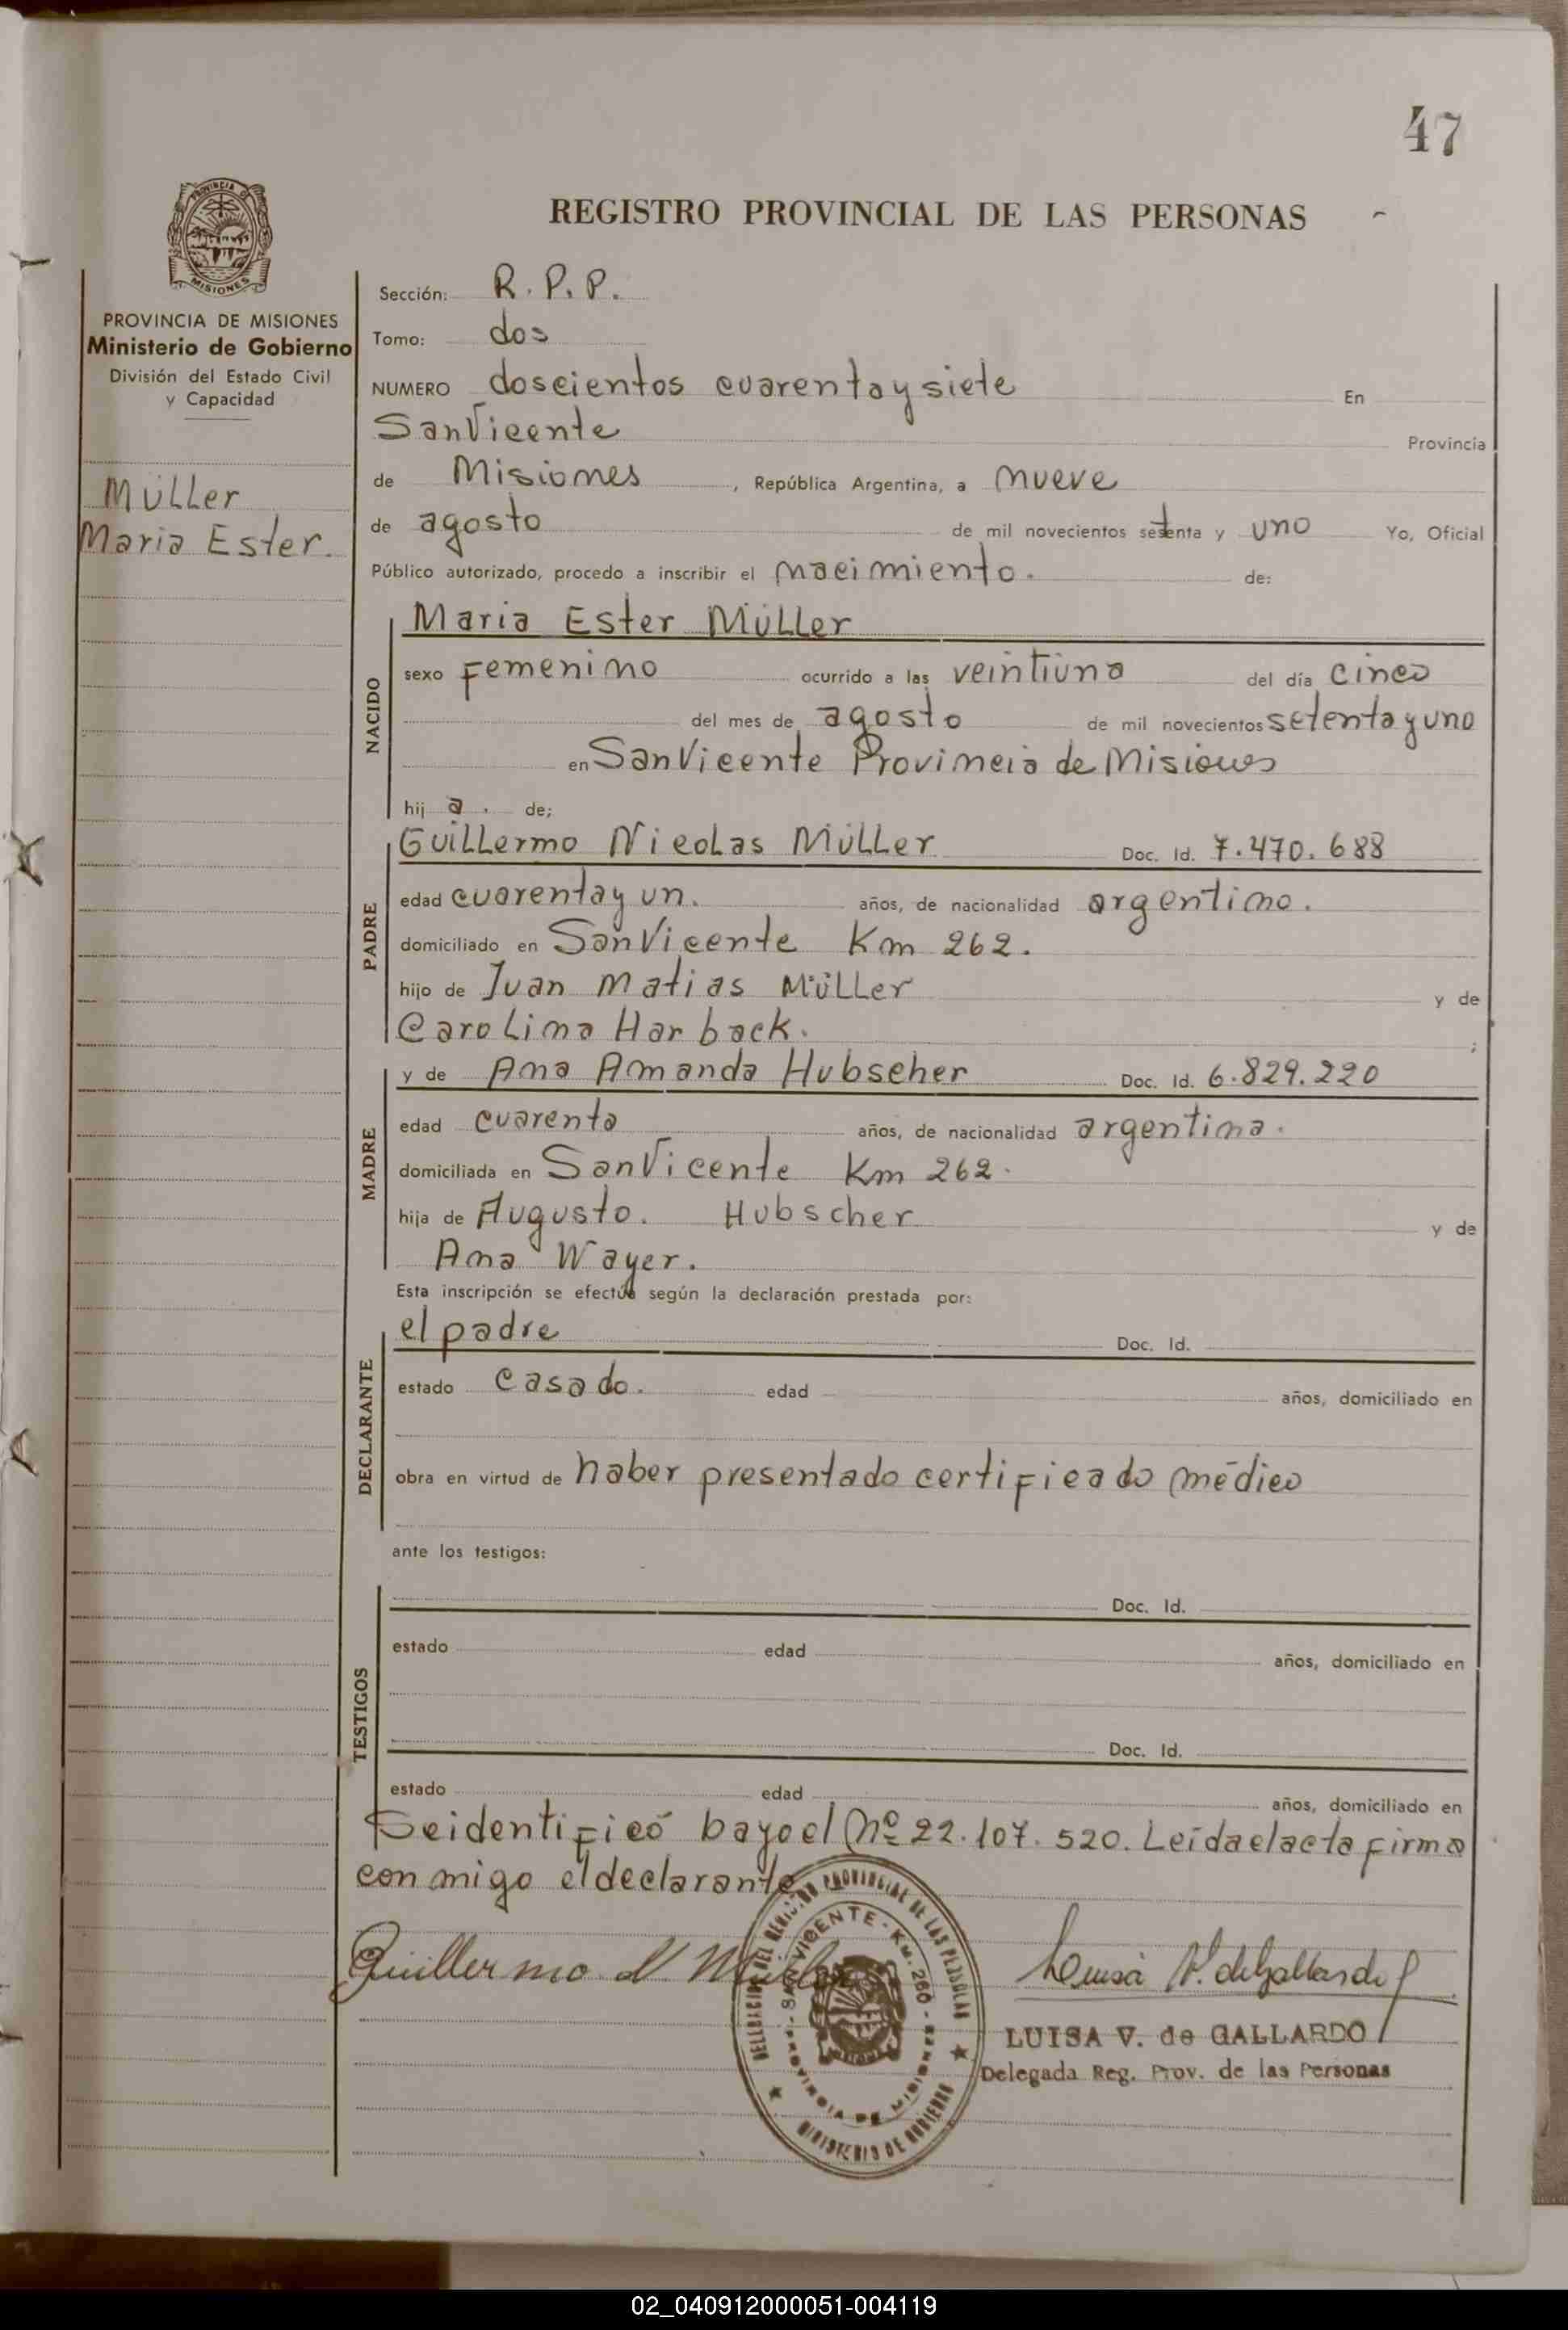 47
REGISTRO PROVINCIAL DE LAS PERSONAS
PROVINCIA DE MISIONES
Ministerio de Gobierno
División del Estado Civil
y Capacidad
Müller
Maria Ester.
Sección: R. P. P.
Tomo: dos
NUMERO doscientos cuarenta y siete En
San Vicente Provincia
de Misiones, República Argentina, a nueve
de agosto de mil novecientos setenta y uno Yo, Oficial
Público autorizado, procedo a inscribir el nacimiento. de:
NACIDO
Maria Ester Müller
sexo Femenino ocurrido a las veintiuna del día cinco
del mes de agosto de mil novecientos setenta y uno
en San Vicente Provincia de Misiones
hij a. de;
PADRE
Guillermo Nicolas Müller Doc. Id. 7.470.688
edad cuarenta y un. años, de nacionalidad argentino.
domiciliado en San Vicente Km 262.
hijo de Juan Matias Müller y de
Carolina Harback. ;
MADRE
y de Ana Amanda Hubscher Doc. Id. 6.829.220
edad cuarenta años, de nacionalidad argentina.
domiciliada en San Vicente Km 262.
hija de Augusto. Hubscher y de
Ana Wayer.
Esta inscripción se efectúa según la declaración prestada por:
DECLARANTE
el padre Doc. Id.
estado casado. edad años, domiciliado en
obra en virtud de haber presentado certificado médico
ante los testigos:
TESTIGOS
Doc. Id.
estado edad años, domiciliado en
Doc. Id.
estado edad años, domiciliado en
Se identificó bayo el Nº 22.107.520. Leída el acta firma
conmigo el declarante
Guillermo N Müller
Luisa V. de Gallardo
LUISA V. de GALLARDO
Delegada Reg. Prov. de las Personas
DELEGACION DEL REGISTRO PROVINCIAL DE LAS PERSONAS
SAN VICENTE - KM. 260
PROVINCIA DE MISIONES
MINISTERIO DE GOBIERNO
02_040912000051-004119